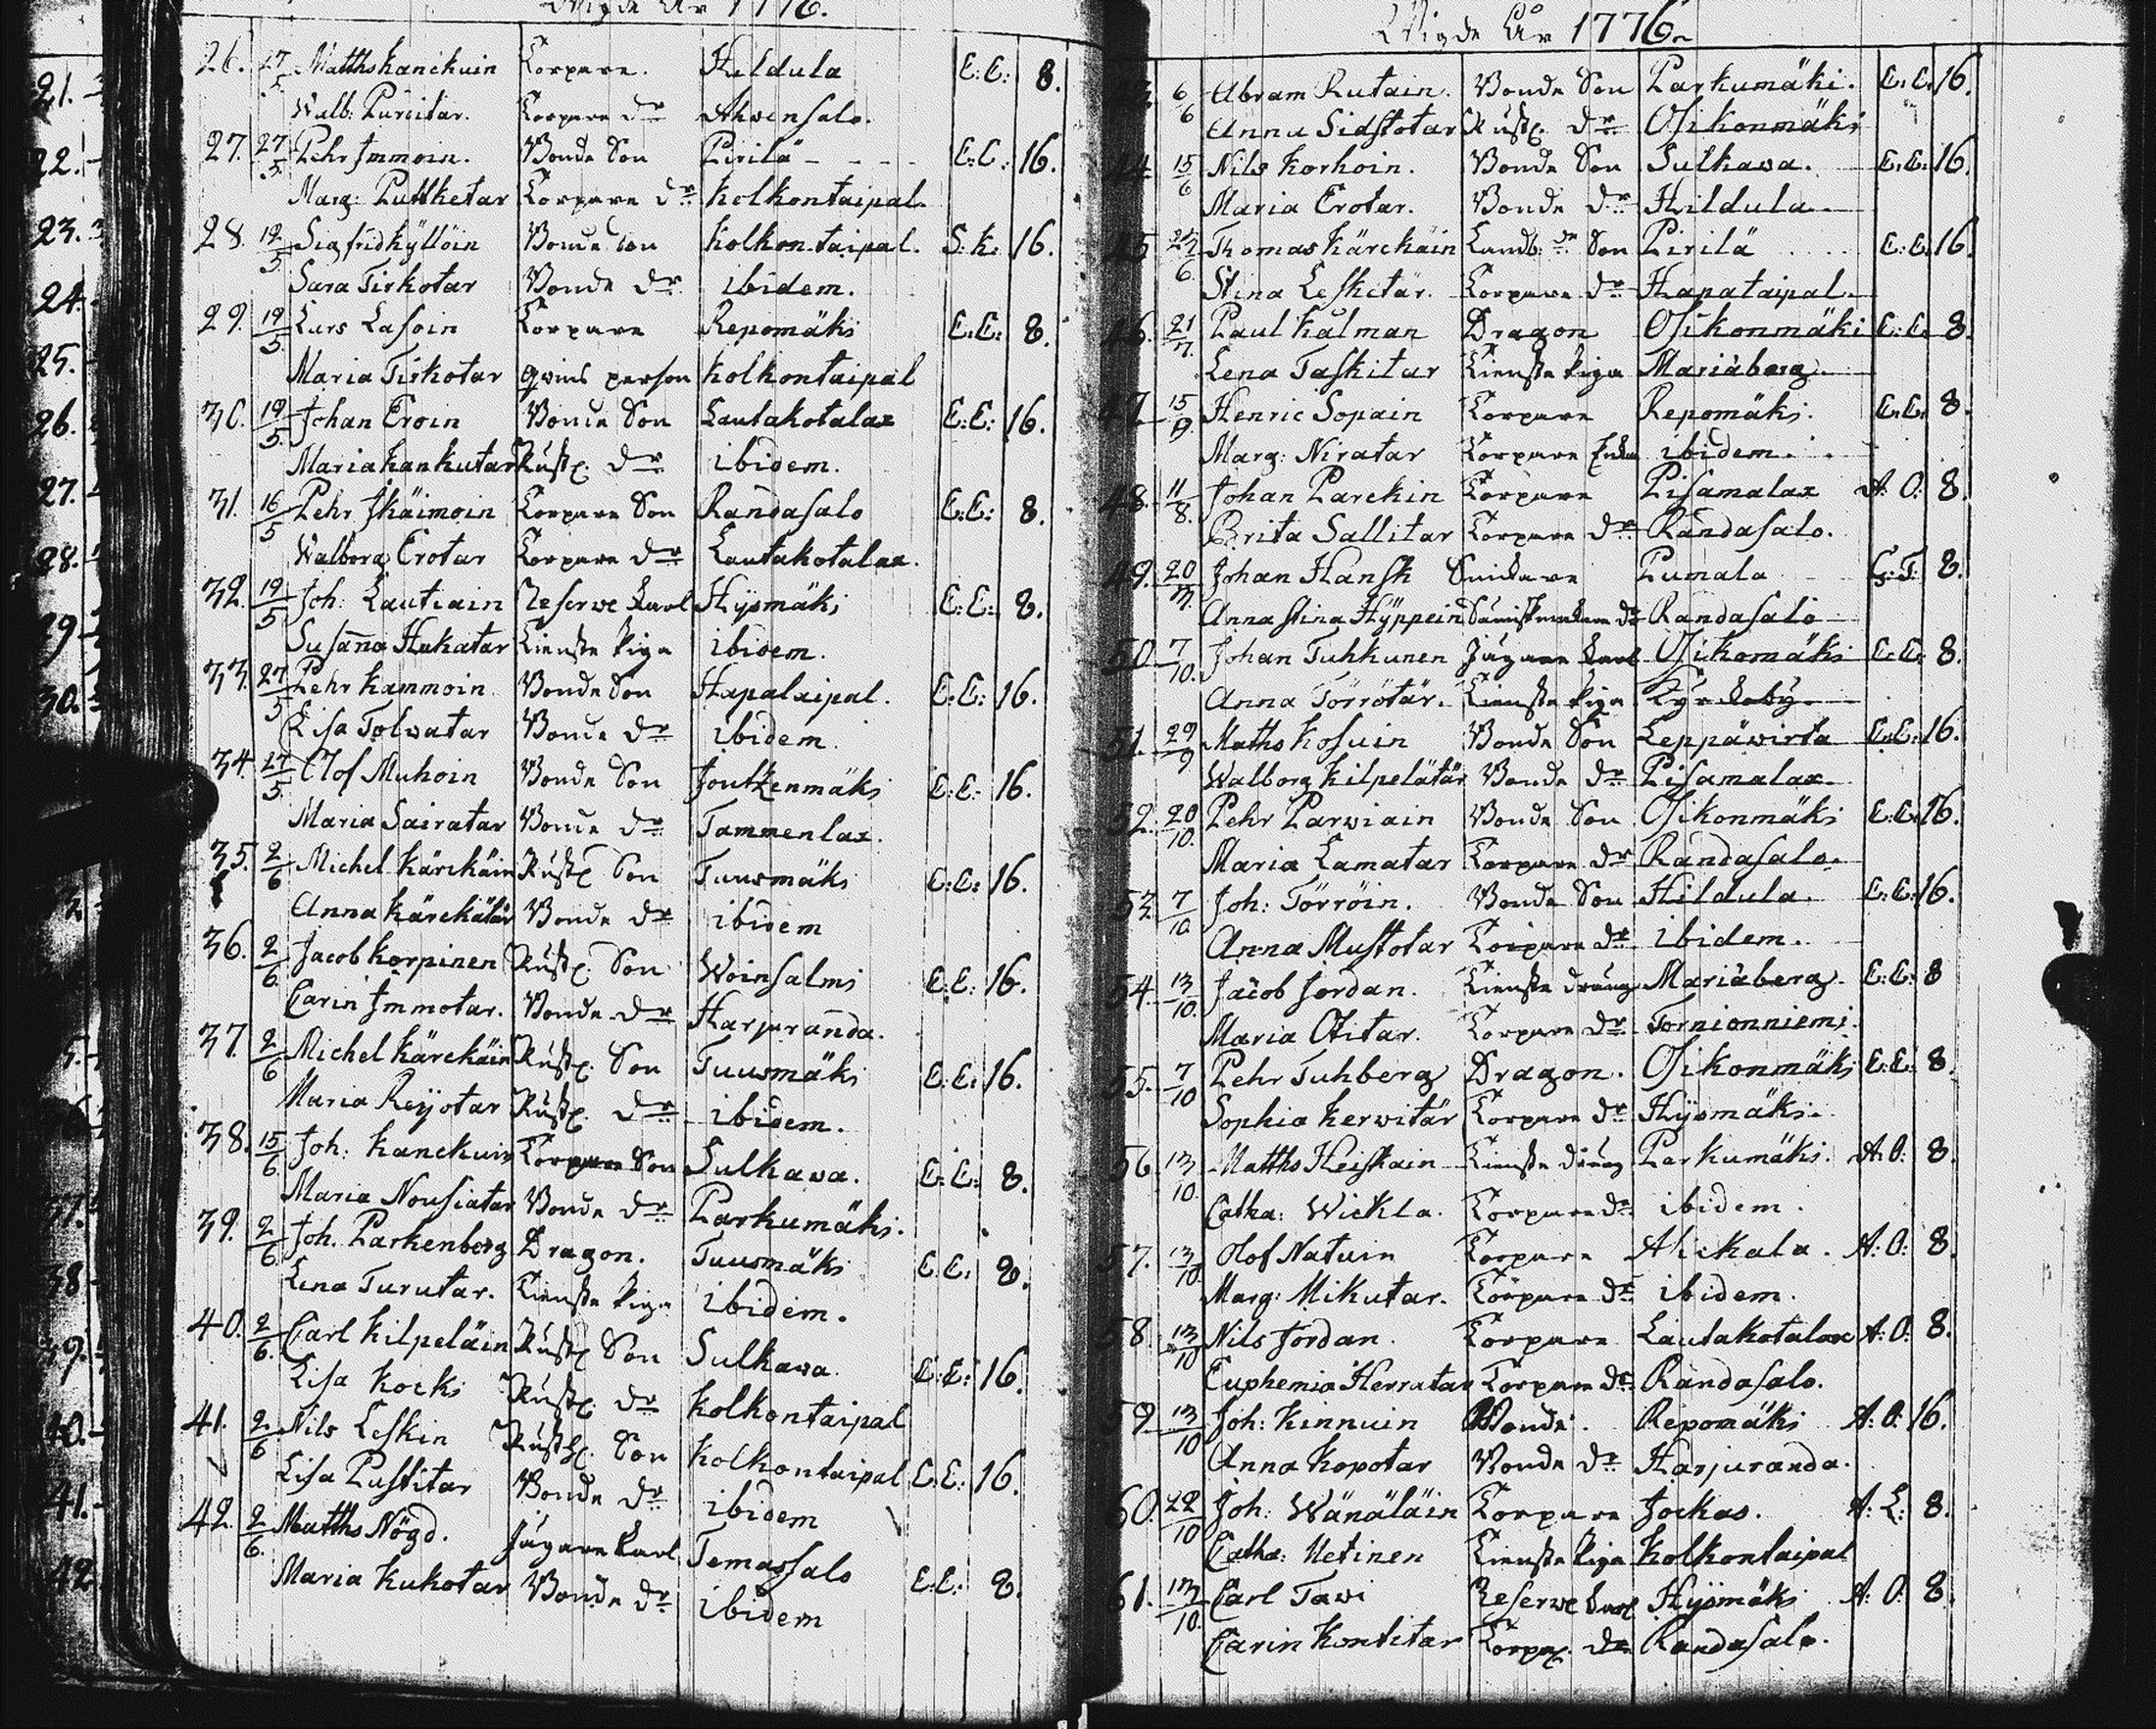 Wigde År 1776.
26. 27/5 Matths Kanckuin Torpare. Hildula E: E: 8.
Walb: Pursitar. Torpare dr Ahwensalo.
27. 27/5 Pehr Immoin. Bonde Son Pirilä E: E: 16.
Marg: Pulkketar Torpare dr Kolkontaipal.
28. 12/5 Sigfrid Kyllöin Bonde Son Kolkontaipal. S: K: 16.
Sara Tirkotar Bonde dr ibidem.
29. 19/5 Lars Lasoin Torpare Repomäki E: E: 8.
Maria Tirkotar qwins person Kolkontaipal
30. 19/5 Johan Eroin Bonde Son Lautakotalax E: E: 16.
Maria Kankutar Rusth. dr ibidem.
31. 16/5 Pehr Ikäimoin Torpare Son Randasalo E: E: 8.
Walborg Erotar Torpare dr Lautakotalax.
32. 19/5 Joh: Lautiain Reserwe Karl Hysmäki E: E: 8.
Susanna Hukatar Tienste Piga ibidem.
33. 27/5 Pehr Kammoin Bonde Son Hapataipal. E: E: 16.
Lisa Tolwatar Bonde dr ibidem.
34. 27/5 Olof Muhoin Bonde Son Joutzenmäki E: E: 16.
Maria Sairatar Bonde dr Tammenlax.
35. 2/6 Michel Kärckäin Rusth. Son Tuusmäki E: E: 16.
Anna Kärckätär Bonde dr ibidem
36. 2/6 Jacob Korpinen Rusth. Son Woinsalmi E: E: 16.
Carin Immotar. Bonde dr Harjuranda.
37. 2/6 Michel Kärckäin Rusth. Son Tuusmäki E: E: 16.
Maria Reijotar Rusth. dr ibidem.
38. 15/6 Joh: Kanckuin Torpare Son Sulkawa. E: E: 8.
Maria Nousiatar Bonde dr Parkumäki.
39. 2/6 Joh. Parkenberg Dragon. Tuusmäki E: E: 8.
Lena Turutar. Tienste Piga ibidem.
40. 2/6 Carl Kilpeläin Rusth. Son Sulkawa. E: E: 16.
Lisa Kocki Rusth. dr Kolkontaipal
41. 2/6 Nils Leskin Rusth. Son Kolkontaipal E: E: 16.
Lisa Pustitar Bonde dr ibidem
42. 2/6 Matths Nögd. Jägare Karl Temassalo E: E: 8.
Maria Kukotar Bonde dr ibidem
Wigde År 1776.
43. 6/6 Abram Rutain. Bonde Son Parkumäki. E: E: 16.
Anna Sidstotar Rusth. dr Osikonmäki
44. 15/6 Nils Korhoin. Bonde Son Sulkawa. E: E: 16.
Maria Erotar. Bonde dr Hildula.
45. 24/6 Thomas Kärckäin Landb: Son Pirilä E: E: 16.
Stina Lesketär. Torpare dr Hapataipal.
46. 21/7 Paul Kalman Dragon Osikonmäki E: E: 8.
Lena Taskitar Tienste Piga Mariäberg.
47. 15/9 Henric Sopain Torpare Repomäki. E: E: 8.
Marg: Niratar Torpare Enka ibidem.
48. 11/8 Johan Parckin Torpare Pisamalax A: O: 8.
Brita Sallitar Torpare dr Randasalo.
49. 20/3 Johan Hansk Snickare Pumala G: T: 8.
Anna Stina Hyppein Randasalo
50. 7/10 Johan Tuhkunen Jägare Karl Osikomäki E: E: 8.
Anna Törrötär. Tienste Piga Kyrckoby.
51. 29/9 Maths Kosuin Bonde Son Leppäwirta E: E: 16.
Walborg Kilpelätär Bonde dr Pisamalax.
52. 20/10 Pehr Parwiain Bonde Son Osikonmäki E: E: 16.
Maria Lamatar Torpare dr Randasalo.
53. 7/10 Joh: Törröin. Bonde Son Hildula. E: E: 16.
Anna Mustotar Torpare dr ibidem.
54. 13/10 Jacob Jordan. Tienste dräng Mariäberg. E: E: 8
Maria Otitar. Torpare dr Tornionniemi.
55. 7/10 Pehr Tuhberg Dragon. Osikonmäki E: E: 8.
Sophia Kerwitär Torpare dr Hysmäki.
56. 13/10 Matths Heiskain Tienste dräng Parkumäki. A: O: 8.
Catha: Wickla. Torpare dr ibidem.
57. 13/10 Olof Natuin Torpare Ahckala. A: O: 8.
Marg: Mikutar. Torpare dr ibidem.
58. 13/10 Nils Jordan. Torpare Lautakotalax A: O: 8.
Euphemia Herratar Torpare dr Randasalo.
59. 13/10 Joh: Kinnuin Bonde. Repomäki A: O: 16.
Anna Kopotar Bonde dr Harjuranda.
60. 22/10 Joh: Wänäläin Torpare Jockas. A: L: 8.
Catha: Uetinen Tienste Piga Kolkontaipal
61. 13/10 Carl Tawi Reserwe Karl Hysmäki A: O: 8.
Carin Kontitar Torpar. dr Randasalo.
21.
22.
23.
24.
25.
26.
27.
28.
29
30.
38
39.
40.
41.
42